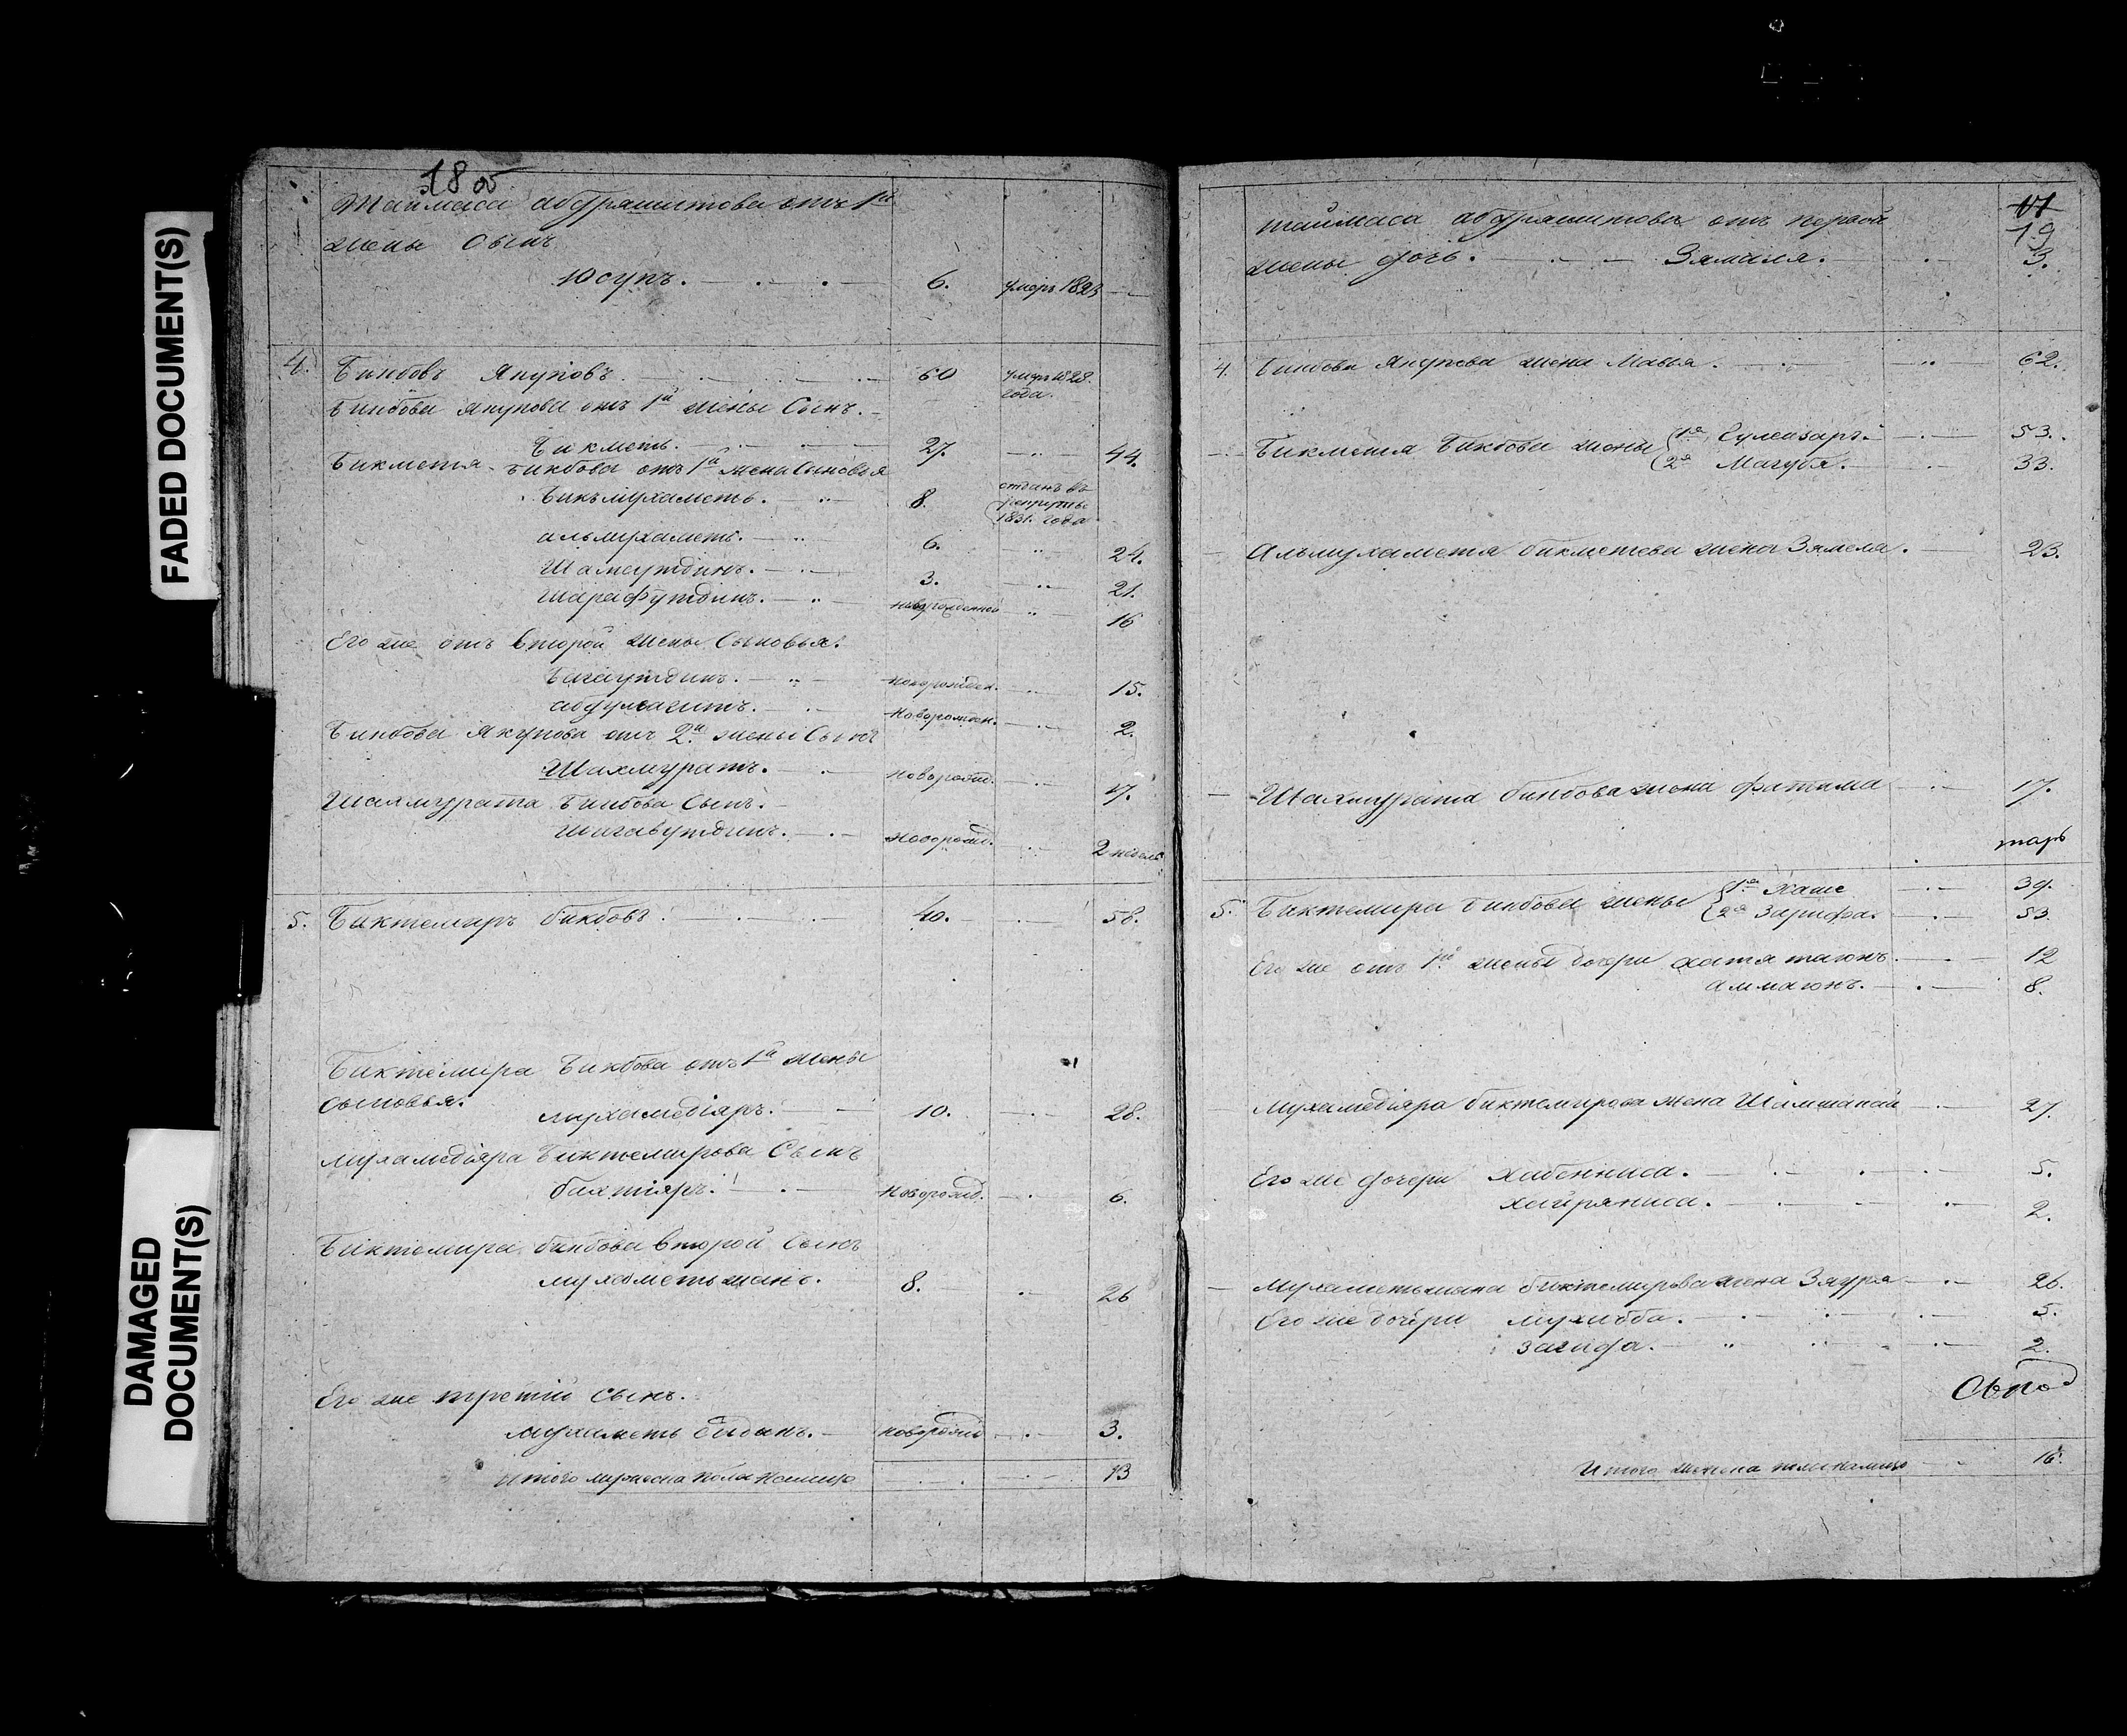 FADED DOCUMENT(S)
DAMAGED
DOCUMENT(S)
18 об
Таймаса абдряшитова отъ 1й
жены Сынъ
Юсупъ. 6. умеръ 1823
4. Бикбовъ Якуповъ. 60 умеръ 1828.
года.
Бикбова Якупова отъ 1й жены Сынъ.
Бикметь. 27. 44.
Бикметя Бикбова отъ 1й жены Сыновья
Бикъмухаметь. 8. отданъ въ
рекруты
1831. года
альмухаметь. 6. 24.
Шамсутдинъ. 3. 21.
Шарафутдинъ. новорожденной 16
Его же отъ второй жены Сыновья.
Багаутдинъ. новорожден. 15.
абдулвагитъ. Новорожден. 2.
Бикбова Якупова отъ 2й жены Сынъ
Шахмуратъ. новорожд. 17.
Шахмурата Бикбова Сынъ.
Шигавутдинъ. Новорожд. 2 недель
5. Биктемиръ бикбовъ. 40. 58.
Биктемира Бикбова отъ 1й жены
Сыновья.
мухамедіяръ. 10. 28.
мухамедіяра Биктемирова Сынъ
бахтіяръ. Новорожд. 6.
Биктемира бикбова второй Сынъ
мухаметьжанъ. 8. 26
Его же третій Сынъ.
мухаметь новорожд 3.
Итого мужеска пола налицо 13
17
19
таймаса абдряшитова отъ первой
жены дочь. Зямиля. 3.
4. Бикбова Якупова жена Мавья. 62.
Бикметя Бикбова жены 1я Гульизаръ 53.
2я Магубя. 33.
Альмухаметя бикметева жена Зямеля. 23.
Шахмурата бикбова жена фатима 17.
5. Биктемира бикбова жены 1я 39.
2я Зарифа. 53.
Его же отъ 1й жены дочери 12
8.
Мухамедіяра биктемирова жена 27.
Его же дочери хабенниса. 5.
хайряниса. 2.
Мухаметьжана биктемирова жена Заура 26.
Его же дочери мухибба. 5.
Загифа. 2.
Итого женска пола налицо 16.